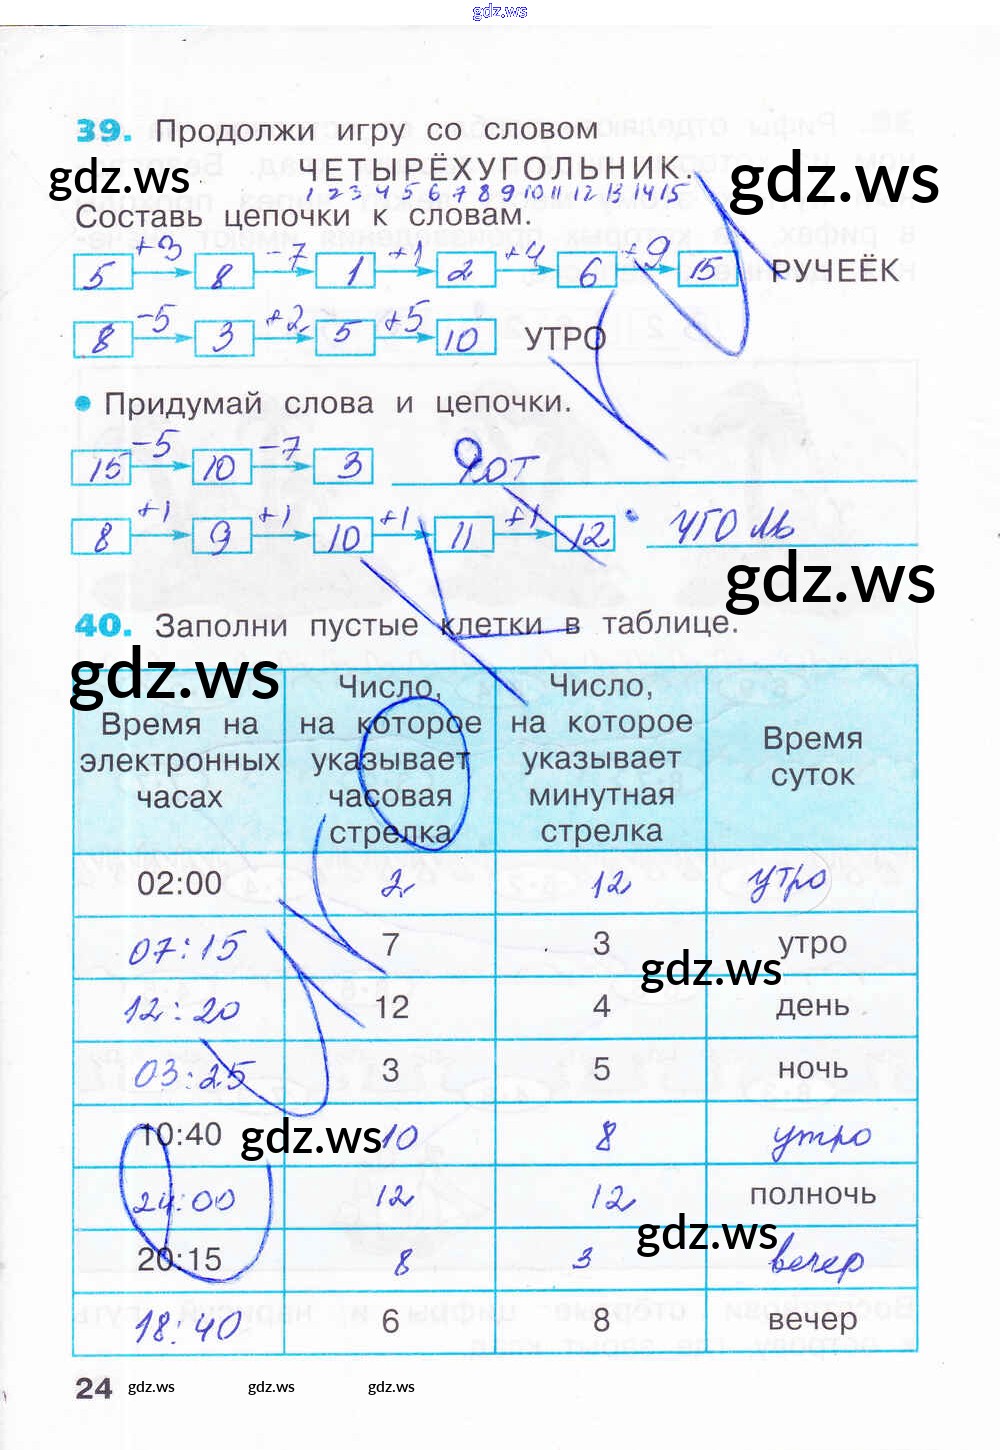 gdz.ws
39. Продолжи игру со словом
ЧЕТЫРЁХУГОЛЬНИК.
gdz.ws gdz.ws
1 2 3 4 5 6 7 8 9 10 11 12 13 14 15
Составь цепочки к словам.
+3 -7 +1 +4 +9
5 8 1 2 6 15 РУЧЕЁК
-5 +2 +5
8 3 5 10 УТРО
• Придумай слова и цепочки.
-5 -7
15 10 3
+1 +1 +1 +1
8 9 10 11 12 . уголь
gdz.ws
40. Заполни пустые клетки в таблице.
gdz.ws
Время на электронных часах
Число, на которое указывает часовая стрелка
Число, на которое указывает минутная стрелка
Время суток
02:00 2 12 утро
07:15 7 3 утро
gdz.ws
12:20 12 4 день
03:25 3 5 ночь
10:40 10 8 утро
gdz.ws
24:00 12 12 полночь
gdz.ws
20:15 8 3 вечер
18:40 6 8 вечер
24 gdz.ws gdz.ws gdz.ws